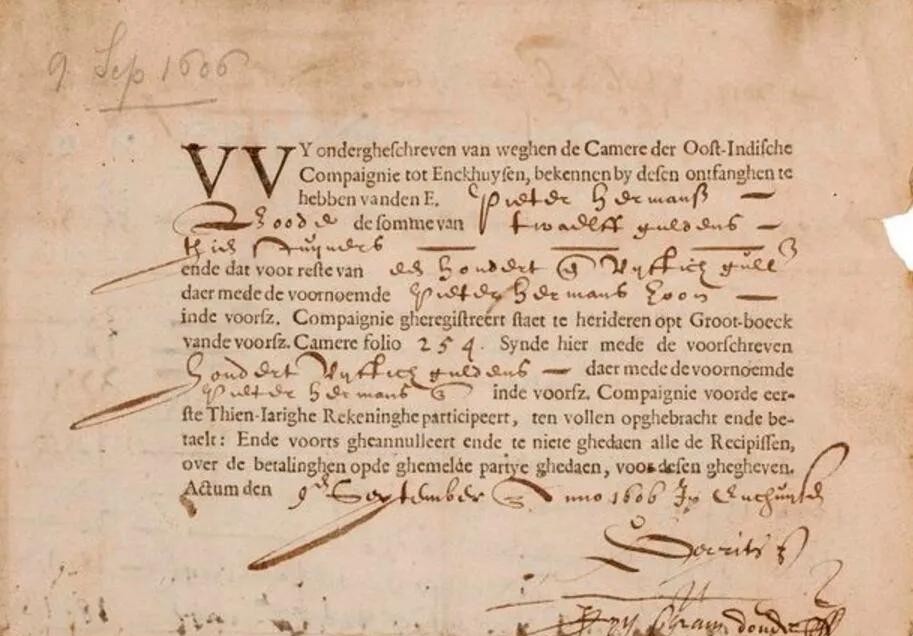 9 Sep 1606
VVY ondergheschreven van weghen de Camere der Oost-Indische
Compaignie tot Enckhuysen, bekennen by desen ontfanghen te
hebben vanden E. Pieter Hermansz
de somme van twaelff guldens
thien stuyvers
ende dat voor reste van een hondert vyftich gull
daer mede de voornoemde Pieter Hermans zoon
inde voorsz. Compaignie gheregistreert staet te herideren opt Groot-boeck
vande voorsz. Camere folio 254. Synde hier mede de voorschreven
hondert vyftich guldens daer mede de voornoemde
Pieter Hermans inde voorsz. Compaignie voorde eer-
ste Thien-Iarighe Rekeninghe participeert, ten vollen opghebracht ende be-
taelt: Ende voorts gheannulleert ende te niete ghedaen alle de Recipissen,
over de betalinghen opde ghemelde partye ghedaen, voor desen ghegheven.
Actum den 9en September Anno 1606 In Enchuysen